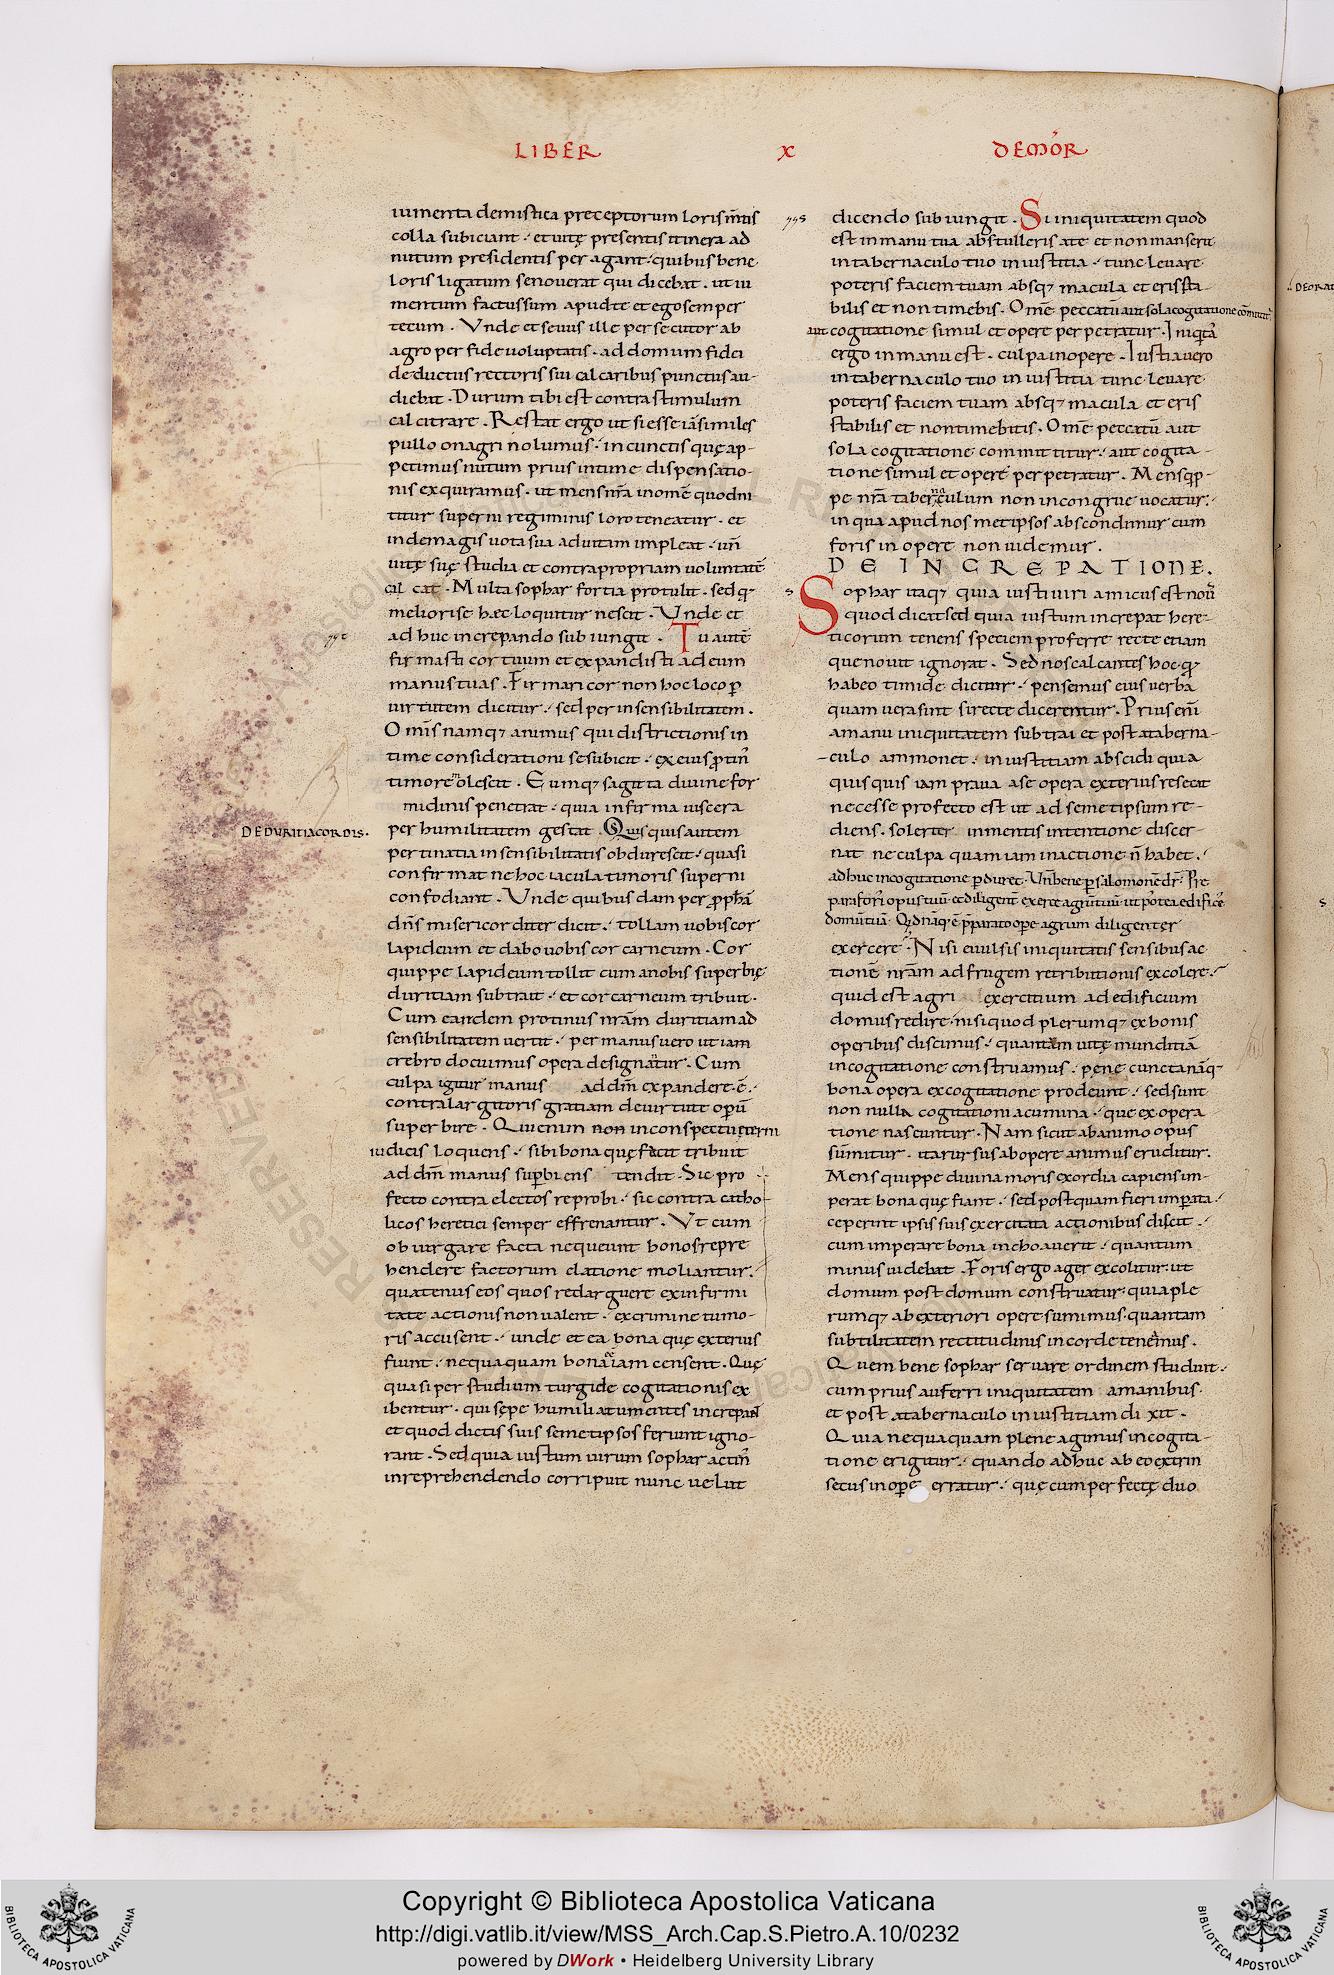 LIBER X DE MOR̄
iumenta demistica preceptorum loris m̄tis
colla subiciant · et uitę presentis itinera ad
nutum presidentis peragant · quibus bene
loris ligatum se nouerat qui dicebat · ut iu
mentum factus sum apud te et ego semper
tecum · Vnde et seuus ille persecutor ab
agro perfide uoluptatis · ad domum fidei
deductus rectoris sui calcaribus punctus au-
diebat · Durum tibi est contra stimulum
calcitrare · Restat ergo ut si esse iā similes
pullo onagri nolumus · in cunctis quę ap-
petimus nutum prius intime dispensatio-
nis exquiramus · ut mens nr̄a in om̄e quod ni
titur superni regiminis loro teneatur · et
inde magis uota sua ad uitam impleat · un̄
uitę suę studia et contra propriam uoluntatē
cal cat · Multa sophar fortia protulit · sed q
meliori se hęc loquitur nescit · Vnde et
adhuc increpando subiungit · Tu autē
firmasti cor tuum et expandisti ad eum
manus tuas · Firmari cor non hoc loco p
uirtutem dicitur · sed per insensibilitatem ·
Om̄is namq; animus qui districtionis in
time considerationi se subicit · ex eius p̄tin̄
timore mollescit · Eumq; sagitta diuine for
midinis penetrat · quia infirma uiscera
DE DVRITIA CORDIS·
per humilitatem gestat · Quisquis autem
pertinatia insensibilitatis obdurescit · quasi
confirmat ne hoc iacula timoris superni
confodiant · Vnde quibusdam per p̄ph̄ā
dn̄s misericorditer dicit · tollam uobis cor
lapideum et dabo uobis cor carneum · Cor
quippe lapideum tollit cum a nobis superbię
duritiam subtrait · et cor carneum tribuit ·
Cum eandem protinus nr̄am duritiam ad
sensibilitatem uertit · per manus uero ut iam
crebro docuimus opera designatur · Cum
culpa igitur manus ad dm̄ expandere · ē ·
contra largitoris gratiam de uirtute operū
superbire · Qui enim non in conspectu ęterni
iudicis loquens · sibi bona quę fecit tribuit
ad dm̄ manus superbiens tendit · Sic pro
fecto contra electos reprobi · sic contra catho-
licos heretici semper effrenantur · Vt cum
obiurgare facta nequeunt bonos repre
hendere factorum elatione moliantur ·
quatenus eos quos redarguere ex infirmi
tate actionis non ualent · ex crimine tumo-
ris accusent · unde et ea bona quę exterius
fiunt · nequaquam bona iam censent · Quę
quasi per studium turgide cogitationis ex
ibentur · qui sępe humiliatu mentes increpant
et quod dictis suis semetipsos feriunt igno-
rant · Sed quia iustum uirum sophar actin̄
in reprehendendo corripuit nunc uelut
dicendo subiungit · Si iniquitatem quod
est in manu tua abstulleris a te et non manserit
in tabernaculo tuo iniustitia · tunc leuare
poteris faciem tuam absq; macula et eris sta
bilis et non timebis · Om̄e peccatū aut sola cogitatione cōmittit̄
aut cogitatione simul et opere perpetratur · Iniqtā
ergo in manu est · culpa in opere · Iustia uero
in tabernaculo tuo iniustitia tunc leuare
poteris faciem tuam absq; macula et eris
stabilis et non timebitis · Om̄e peccatū aut
sola cogitatione committitur · aut cogita-
tione simul et opere perpetratur · Mens qp-
pe nr̄a tabernaculum non incongrue uocatur ·
in qua apud nosmetipsos abscondimur cum
foris in opere non uidemur ·
DE INCREPATIONE.
Sophar itaq; quia iusti uiri amicus est nouit
quod dicat sed quia iustum increpat here-
ticorum tenens speciem proferre recte etiam
que nouit ignorat · Sed nos calcantes hoc q
habeo timide dicitur · pensemus eius uerba
quam uera sint si recte dicerentur · Prius eni
a manu iniquitatem subtrai et post a taberna-
culo ammonet · iniustitiam abscidi quia
quisquis iam praua a se opera exterius resecat
necesse profecto est ut ad semetipsum re-
diens · solerter in mentis intentione discer-
nat ne culpa quam iam in actione n̄ habet ·
adhuc in cogitatione p̄duret · Un̄ bene p̄ salomonē dr̄ · Pre
para foris opus tuū · et diligent̄ exerce agrū tuū ut postea edifices
domū tuā · Qd namq; ē p̄parato opere agrum diligenter
exercere · Nisi euulsis iniquitatis sensibus ac
tionē nr̄am ad frugem retributionis excolere ·
quid est agri exercitium ad edificium
domus redire · nisi quod plerumq; ex bonis
operibus discimus · quantam uitę munditiā
in cogitatione construamus · pene cuncta nāq;
bona opera ex cogitatione prodeunt · sed sunt
non nulla cogitationi acumina · que ex opera
tione nascuntur · Nam sicut ab animo opus
sūmitur · ita rursus ab opere animus eruditur ·
Mens quippe diuina moris exordia capiens im-
perat bona quę fiant · sed postquam fieri imperata
ceperint ipsis suis exercitata actionibus discit ·
cum imperare bona inchoauerit · quantum
minus uidebat · Foris ergo ager excolitur · ut
domum post domum construatur · quia ple
rumq; ab exteriori opere sumimus · quantam
subtilitatem rectitudinis in corde tenemus ·
Quem bene sophar seruare ordinem studuit ·
cum prius auferri iniquitatem a manibus ·
et post a tabernaculo iniustitiam dixit ·
Quia nequaquam plene agimus in cogita-
tione erigitur · quando adhuc ab eo extrin
secus in opere erratur · quę cum perfecte duo
Copyright © Biblioteca Apostolica Vaticana
http://digi.vatlib.it/view/MSS_Arch.Cap.S.Pietro.A.10/0232
powered by DWork • Heidelberg University Library
BIBLIOTECA APOSTOLICA VATICANA
BIBLIOTECA APOSTOLICA VATICANA